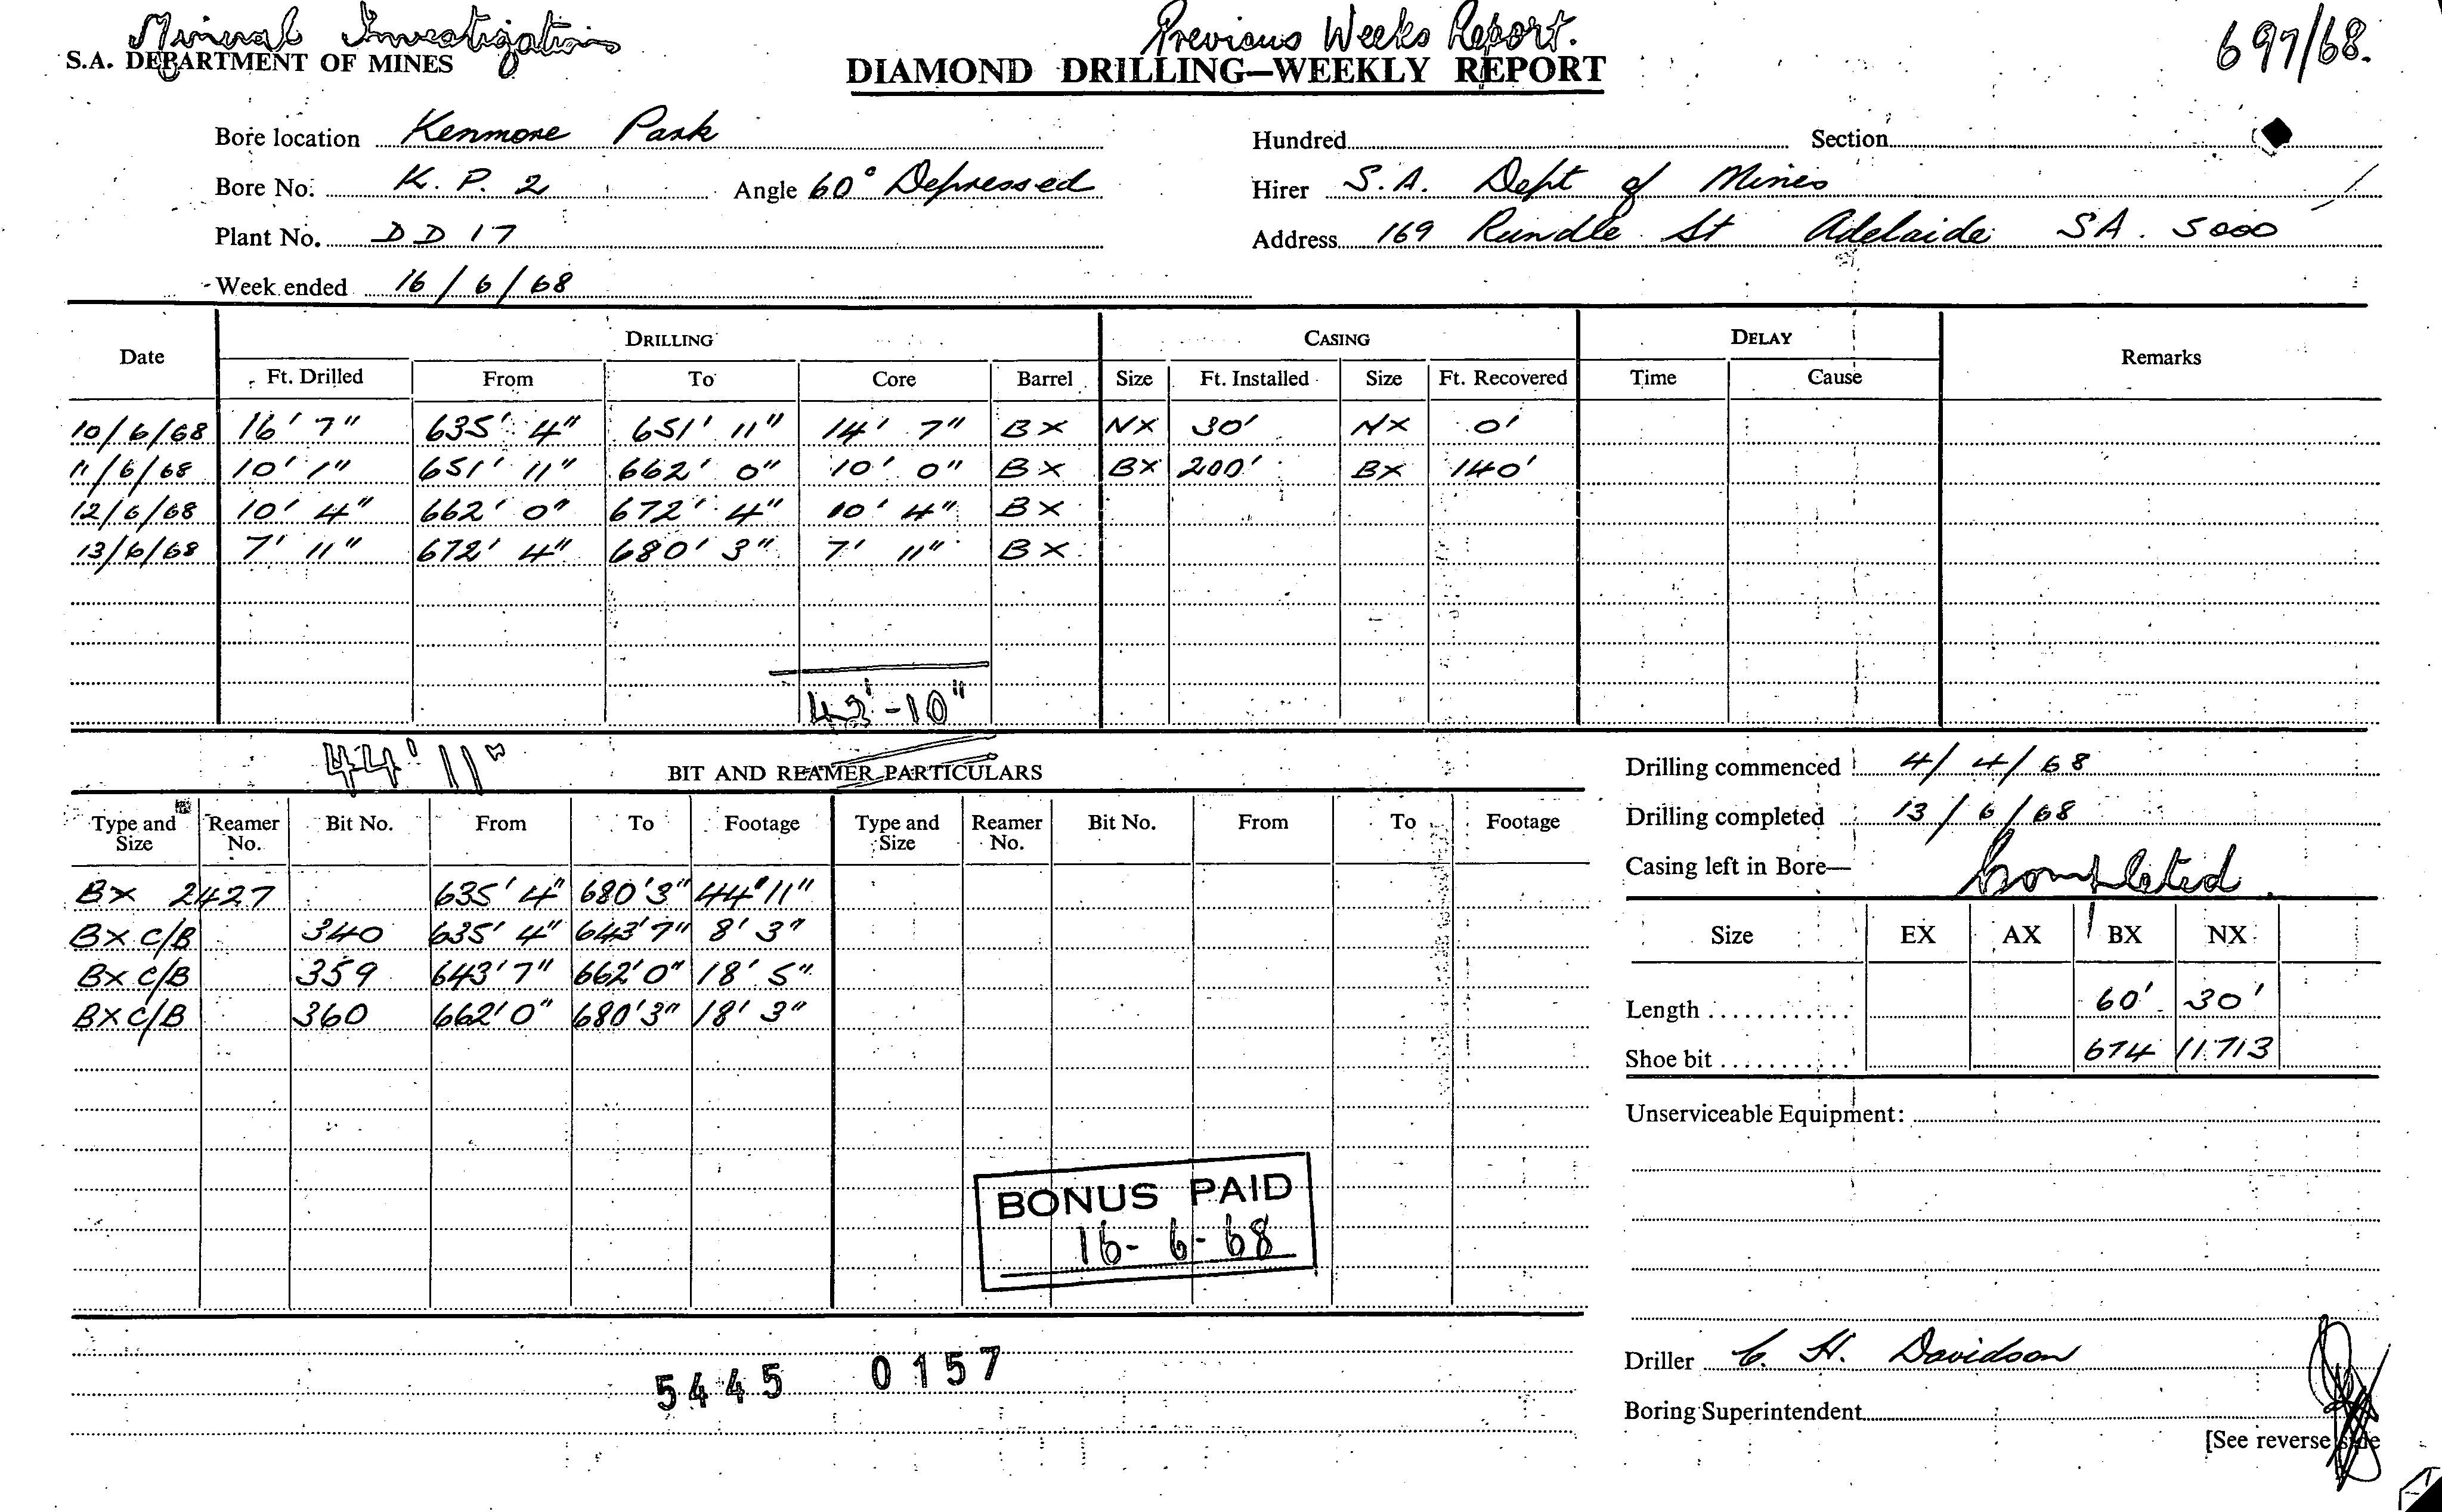 Mineral Investigations
Previous Weeks Report.
697/68.
S.A. DEPARTMENT OF MINES
DIAMOND DRILLING—WEEKLY REPORT
Bore location Kenmore Park
Hundred Section
Bore No. K. P. 2 Angle 60° Depressed
Hirer S.A. Dept of Mines
Plant No. DD 17
Address 169 Rundle St Adelaide SA. 5000
Week ended 16/6/68
Date DRILLING CASING DELAY Remarks
Ft. Drilled From To Core Barrel Size Ft. Installed Size Ft. Recovered Time Cause
10/6/68 16' 7" 635' 4" 651' 11" 14' 7" BX NX 30' NX 0'
11/6/68 10' 1" 651' 11" 662' 0" 10' 0" BX BX 200' BX 140'
12/6/68 10' 4" 662' 0" 672' 4" 10' 4" BX
13/6/68 7' 11" 672' 4" 680' 3" 7' 11" BX
42'-10"
44' 11"
BIT AND REAMER PARTICULARS
Type and Size Reamer No. Bit No. From To Footage Type and Size Reamer No. Bit No. From To Footage
BX 2427 635' 4" 680'3" 44" 11"
BX C/B 340 635' 4" 643'7" 8' 3"
BX C/B 359 643'7" 662'0" 18' 5"
BX C/B 360 662'0" 680'3" 18' 3"
BONUS PAID
16-6-68
5445 0157
Drilling commenced 4/4/68
Drilling completed 13/6/68
Casing left in Bore— Completed.
Size EX AX BX NX
Length ............ 60' 30'
Shoe bit ........... 674 11713
Unserviceable Equipment:
Driller C. H. Davidson
Boring Superintendent
[See reverse side